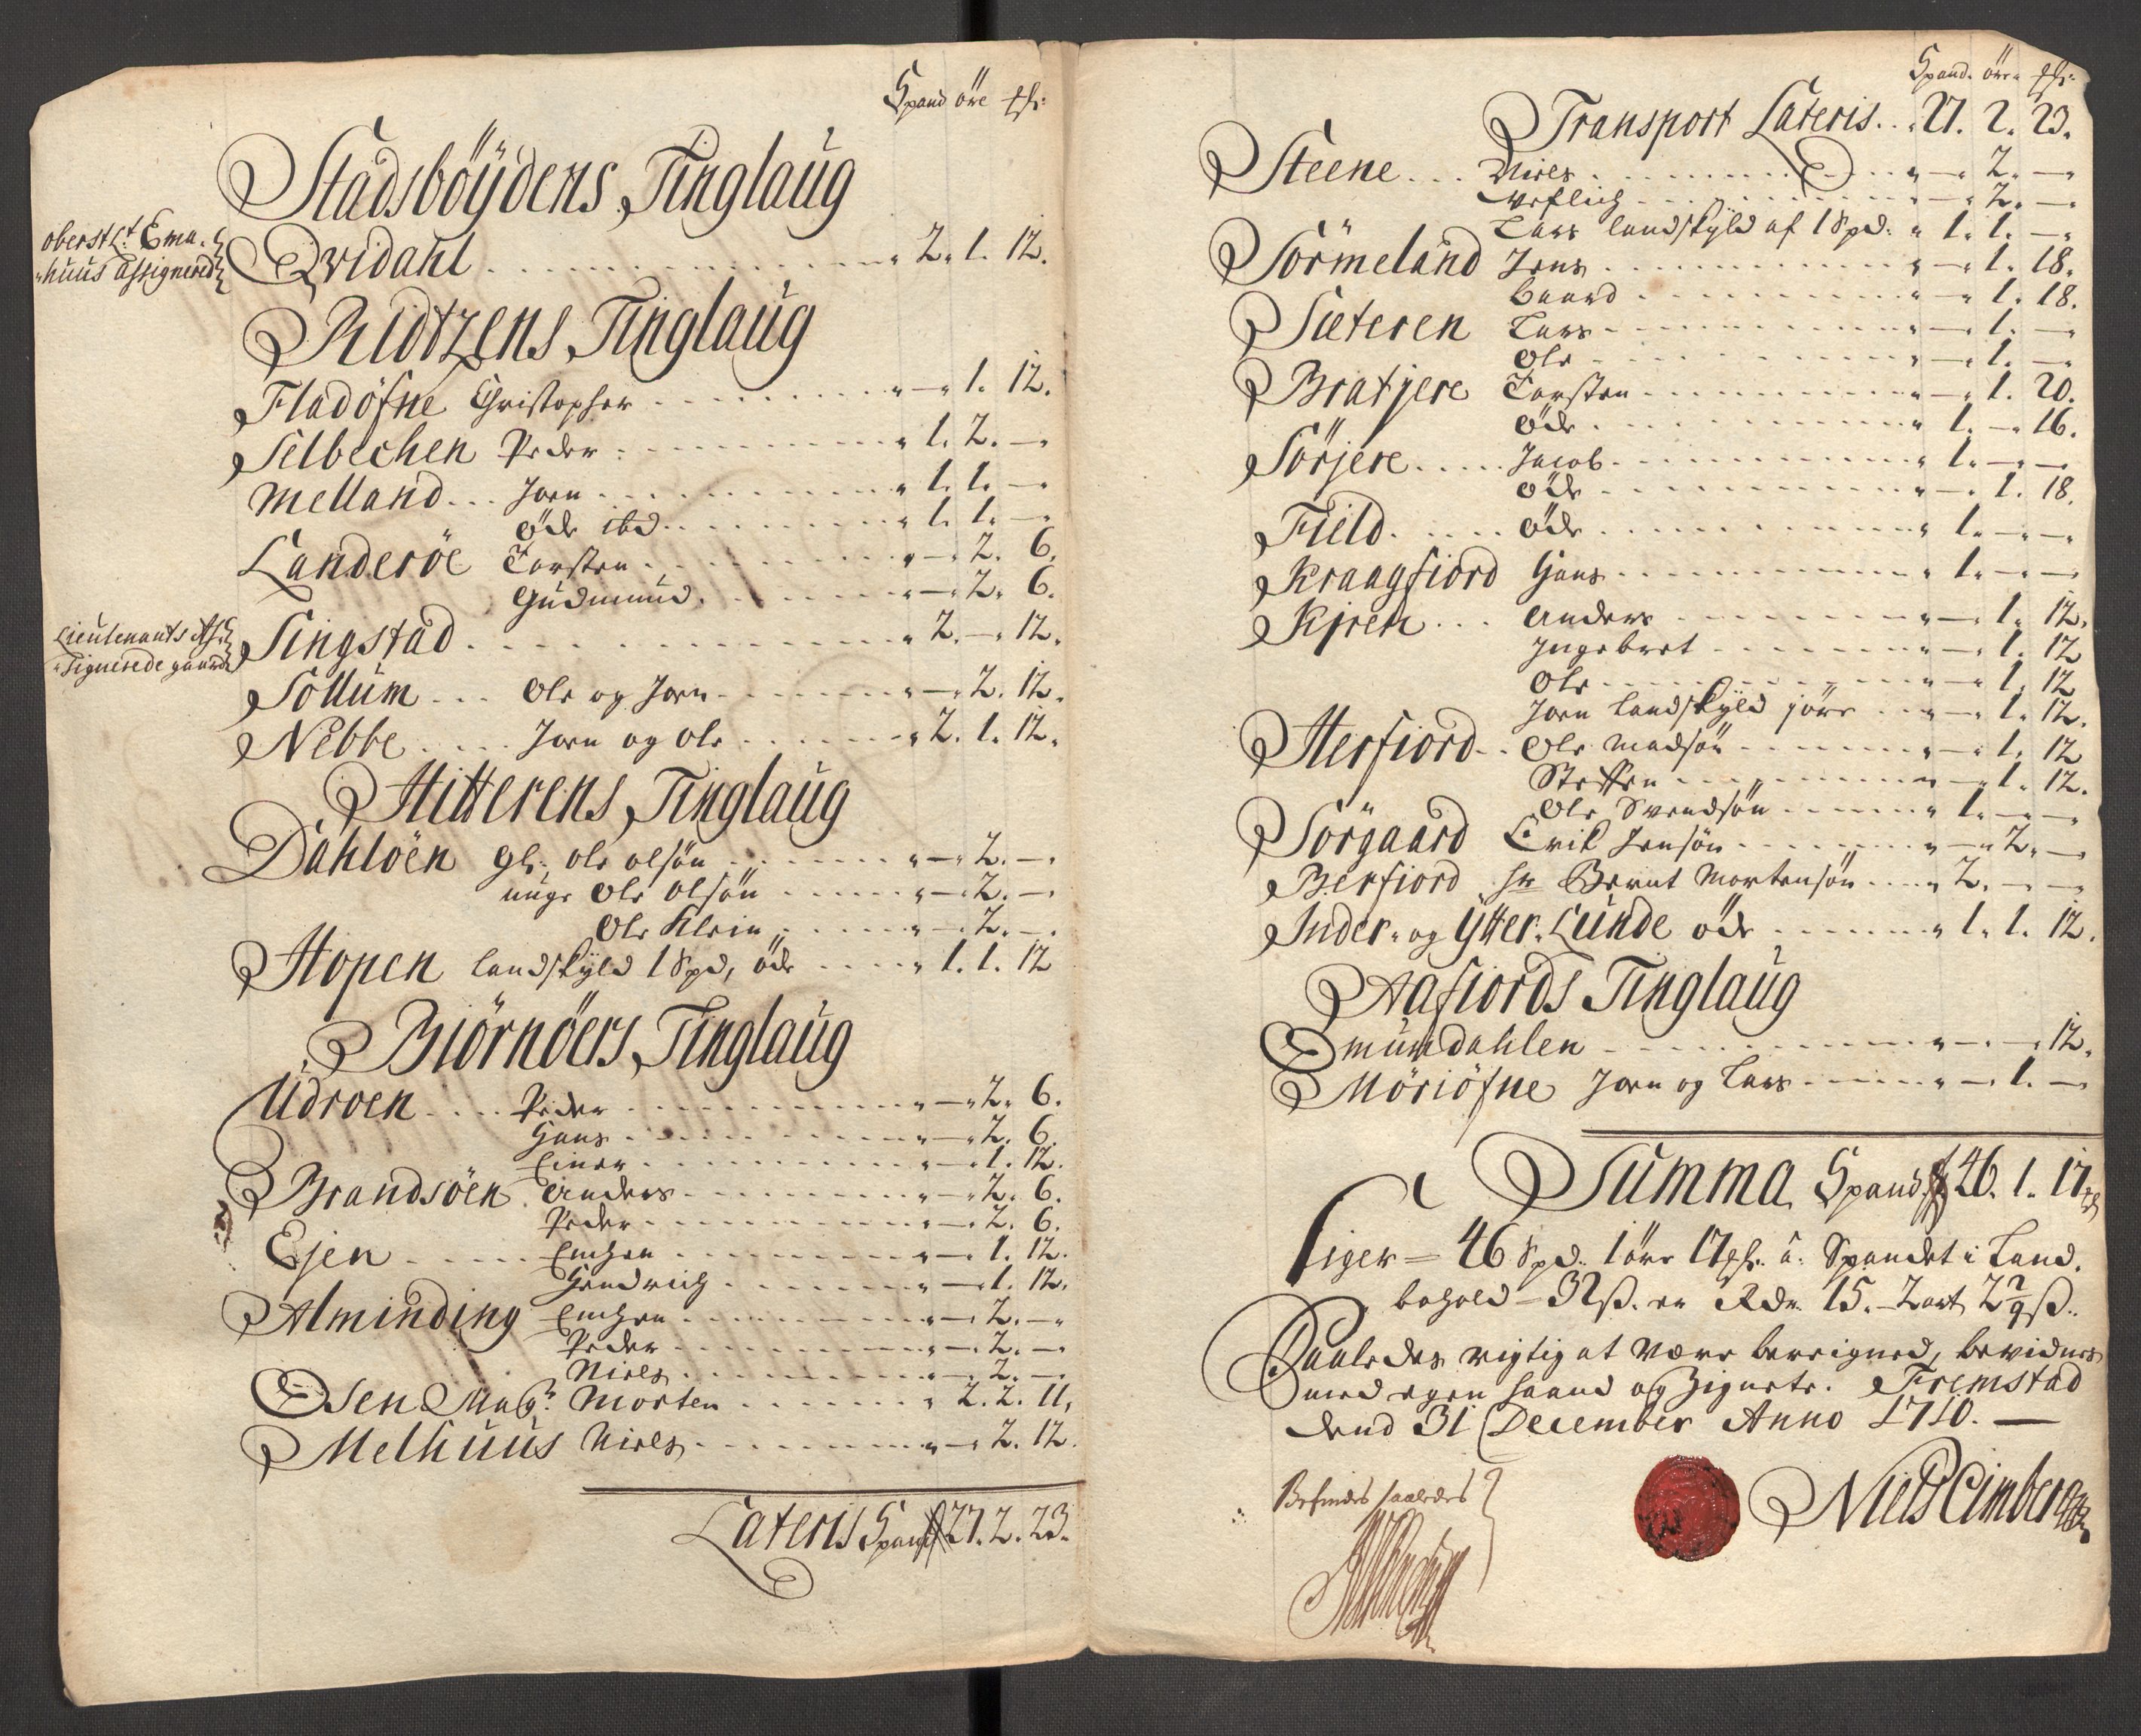 Spand öre
Stadsböÿdens Tinglaug
oberst Lt: Ema,
huus assignered
Qvidahl 2. 1. 12.
Ridtzens Tinglaug
Fladöfne Christopher — 1. 12.
Selbechen Peder 1. 2. —
Melland Joen 1. 1. —
öde ibd. 1. 1. —
Landeröe Torsten — 2. 6.
Gudmund — 2. 6.
Lieutenants As-
signerede gaard
Singstad 2. — 12.
Sollum Ole og Joen — 2. 12.
Nebbe Joen og Ole 2. 1. 12.
Hitterens Tinglaug
Dahlöen gl: ole olsön — 2. —
unge Ole olsön — 2. —
Ole Klein — 2. —
Hopen landskÿld 1 Spd, öde 1. 1. 12
Biörnöers Tinglaug
Udroen Peder — 2. 6.
Hans — 2. 6.
Einer — 1. 12.
Brandsöen Anders — 2. 6.
Peder — 2. 6.
Ejen — 1. 12.
Hendrich — 1. 12.
Alminding — 2. —
Peder — 2. —
Niels — 2. —
Osen Mag: Morten 2. 2. 11.
Melhuus Niels — 2. 12.
Lateris Spand 27. 2. 23.
Spand. öre
Transport Lateris 27. 2. 23.
Steene Niels — 2. —
— 2. —
Lars landskÿld af 1 Spd: 1. 1. —
Sörmeland Jens — 1. 18.
Baard — 1. 18.
Sæteren Lars — 1. —
Ole — 1. —
Bratjere Torsten — 1. 20.
öde 1. — 16.
Sörjere Jacob 1. — —
öde — 1. 18.
Field öde 1. — —
Kraagfiord Hans 1. — —
Kjren Anders — 1. 12.
Ingebret — 1. 12
Ole — 1. 12
Joen landskÿld jöre — 1. 12.
Herfiord Ole Madsön — 1. 12
Steffen — 1. 12.
Ole Svendsön 1. — —
Sörgaard Erik Jensön — 2. —
Berfiord Hr Bernt Mortensön 2. — —
Inder- og Ÿtter-Lunde öde 1. 1. 12.
Aafiords Tinglaug
Omundahlen — — 12.
Möriöfne Joen og Lars — 1. —
Summa Spand 46. 1. 17
Siger = 46 Spd. 1 öre 17 à Spandet i Land,
behold — 32 ß. er Rdr. 15. — 2 ort 2 2/9 ß.
Saaledes rigtig at være beregned, bevidnes
med egen haand og Zignete. Fremstad
dend 31 December Anno 1710. —
Befindes saaledes
Niels Cimberg